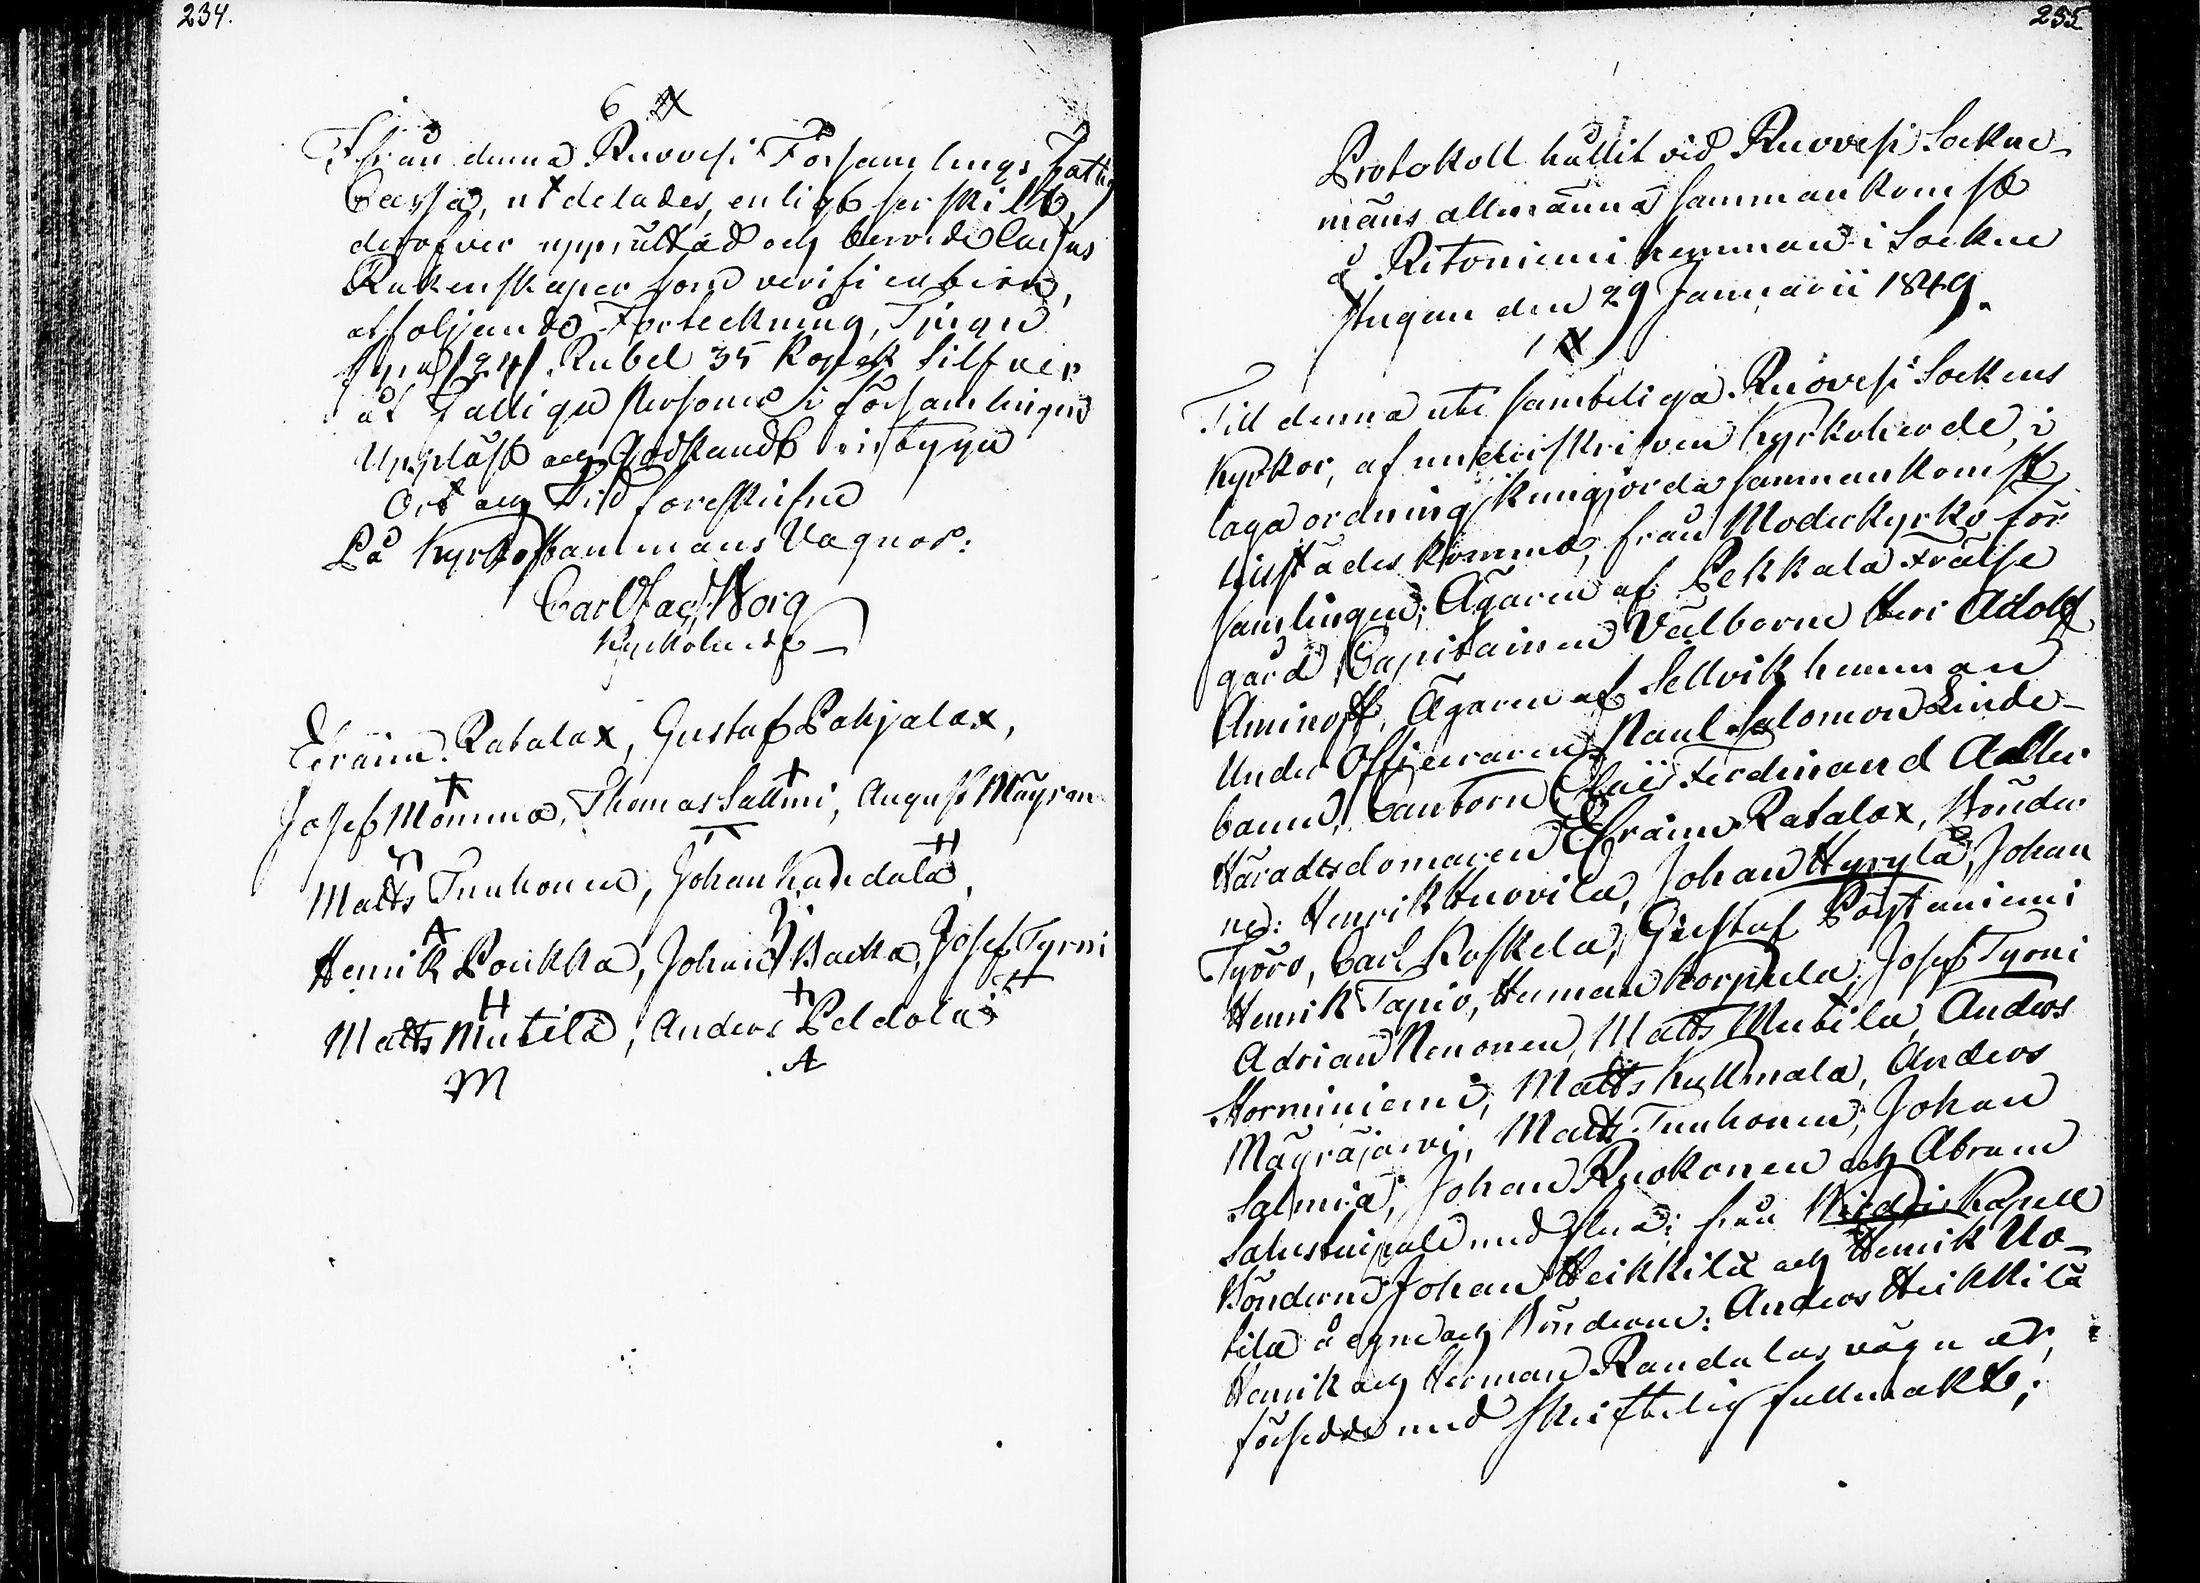 234.
6 §
Ifrån denna Ruovesi Församlings Fattig
Cassa, utdelades, enligt serskilt,
deröfver upprättad och berörde Cassas
Räkenskaper som verificat bör
åtföljande Förteckning, Tjugu
fyra /24/ Rubel 35 Kopek Silfver
åt Fattiga personer i församlingen
Uppläst och Godkändt, betyga
Ort och Tid föreskrifne
På Kyrkostämmans Vägnar:
Carl Gust. Borg
Kyrkoherde
Efraim Ratalax, Gustaf Pohjalax,
Josef Mömmö, Thomas Sattmi, August Mäyrän
Matts Tunhonen, Johan Kandala,
Henrik Poukka, Johan Backa, Josef Tyrni
Matts Mutila, Anders Peldola
M A
235
Protokoll hållit vid Ruovesi Sockne-
mäns allmänna sammankomst
å Ritoniemi hemman i Sockne
stugan den 29 Januarii 1849.
1 §
Till denna uti samteliga Ruovesi Sockens
Kyrkor, af underskrifven Kyrkoherde, i
laga ordning kungjorda sammankomst
tillstädes kommo, från Moderkyrko för-
samlingen; Ägaren af Pekkala Frälse
gård Capitainen Välborne Herr Adolf
Aminoff, Ägaren af Sellvik hemman
Under Officeraren Paul Salomon Linde-
bäum, Cantorn Claës Ferdinand Adler
Häradsdomaren Efraim Ratalax, Bönder
ne: Henrik Huovila, Johan Hyrylä, Johan
Työrö, Carl Koskela, Gustaf Pöytäniemi
Henrik Tapio, Herman Korpula, Josef Tyrni
Adrian Nenonen, Matts Mutila, Anders
Horminiemi, Matts Kullmala, Anders
Mäyräjärvi, Matts Tunhonen, Johan
Salmia, Johan Ruokonen och Abram
Salustaipale med flera; från Wirdois Kapell
Bönderne Johan Heikkilä och Henrik Uo-
tila å egne och Bönderne: Anders Heikkilä
Henrik och Herman Randalas vägnar,
försedde med skriftelig fullmakt;